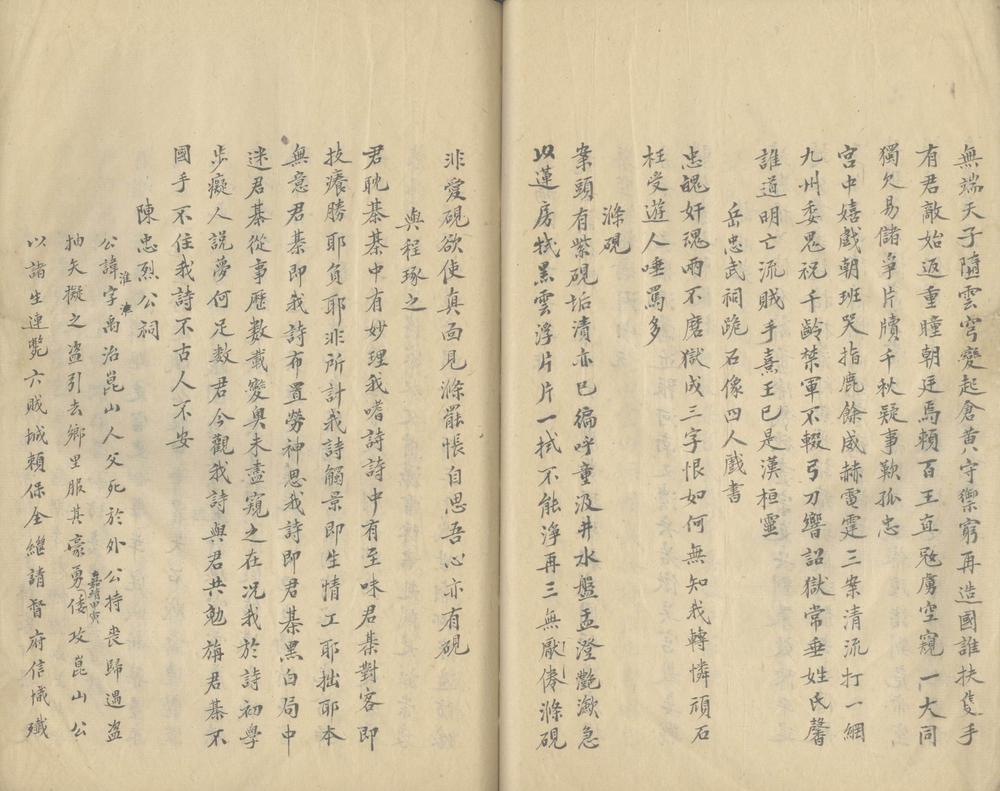 無端天子隨雲穹變起倉黃守禦窮再造國誰扶隻手
有君敵始返重瞳朝廷焉賴百王直敗虜空窺一大同
獨欠易儲爭片牘千秋疑事歎孤忠
宮中嬉戲朝班哭指鹿餘威赫電霆三案清流打一網
九州委鬼祝千齡禁軍不輟弓刀響詔獄常垂姓氏馨
誰道明亡流賊手熹王已是漢桓靈
岳忠武祠跪石像四人戲書
忠魂奸魂兩不磨獄成三字恨如何無知我轉憐頑石
枉受遊人唾罵多
滌硯
案頭有紫硯垢漬亦已徧呼童汲井水盤盂澄艷瀲急
以蓮房拭黑雲浮片片一拭不能淨再三無厭倦滌硯
非愛硯欲使真面見滌罷悵自思吾心亦有硯
與程琢之
君耽棊棊中有妙理我嗜詩詩中有至味君棊對客即
技癢勝耶負耶非所計我詩觸景即生情工耶拙耶本
無意君棊即我詩布置勞神思我詩即君棊黑白局中
迷君棊從事歷數載變奧未盡窺之在况我於詩初學
步癡人說夢何足數君今觀我詩與君共勉旃君棊不
國手不住我詩不古人不安
陳忠烈公祠
公諱淮字禹治崑山人父死於外公持喪歸遇盜
抽矢擬之盜引去鄉里服其豪勇嘉靖甲寅倭攻崑山公
以諸生連斃六賊城賴保全繼請督府信幟殲